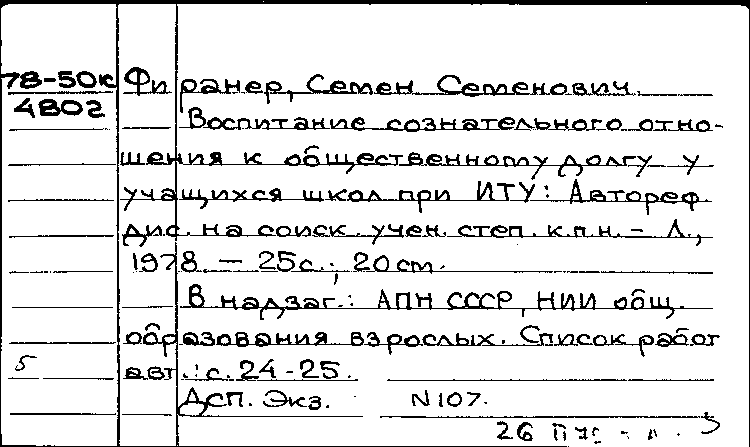 78-50к Фиранер, Семен Семенович.
4802
Воспитание сознательного отно-
шения к общественному долгу у
учащихся школ при ИТУ: Автореф.
дис. на соиск. учен. степ. к.п.н. - Л.,
1978. - 25с.; 20cm.
В надзаг.: АПН СССР, НИИ общ.
образования взрослых. Список работ
5 авт.: с. 24-25.
ДСП. Экз. N107.
26